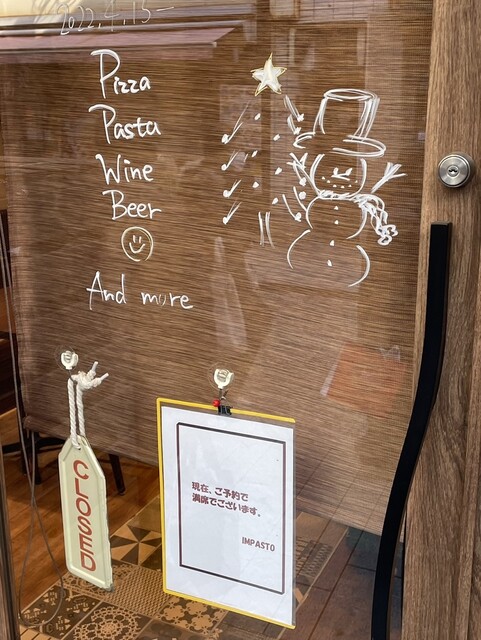 2022.4.15-
Pizza
Pasta
Wine
Beer
And more
CLOSED
現在、ご予約で
満席でございます。
IMPASTO